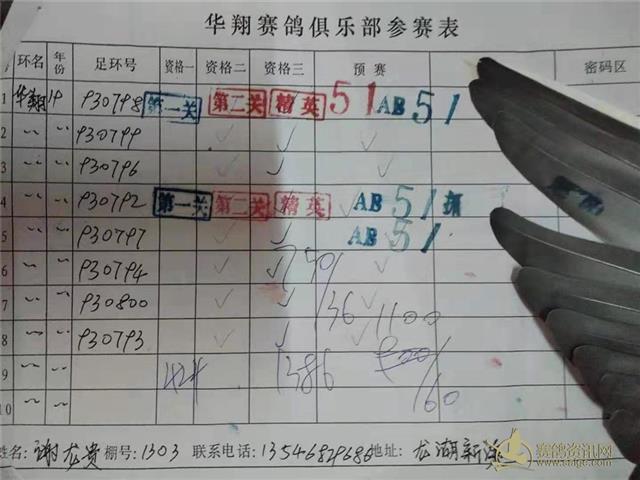 华翔赛鸽俱乐部参赛表
环名 年份 足环号 资格一 资格二 资格三 预赛 密码区
1 华翔 19 930798 第一关 第二关 精英 51 AB 51
2 〃 〃 930799
3 〃 〃 930796
4 〃 〃 930792 第一关 第二关 精英 AB 51
5 〃 〃 930797 AB 51
6 〃 〃 930794
7 〃 〃 930800 136 1100
8 〃 〃 930793
9 〃 〃 424 1386
10 〃 〃 160
姓名: 谢龙贵 棚号: 1303 联系电话: 13546829686 地址: 龙湖新
赛鸽资讯网
www.saige.com